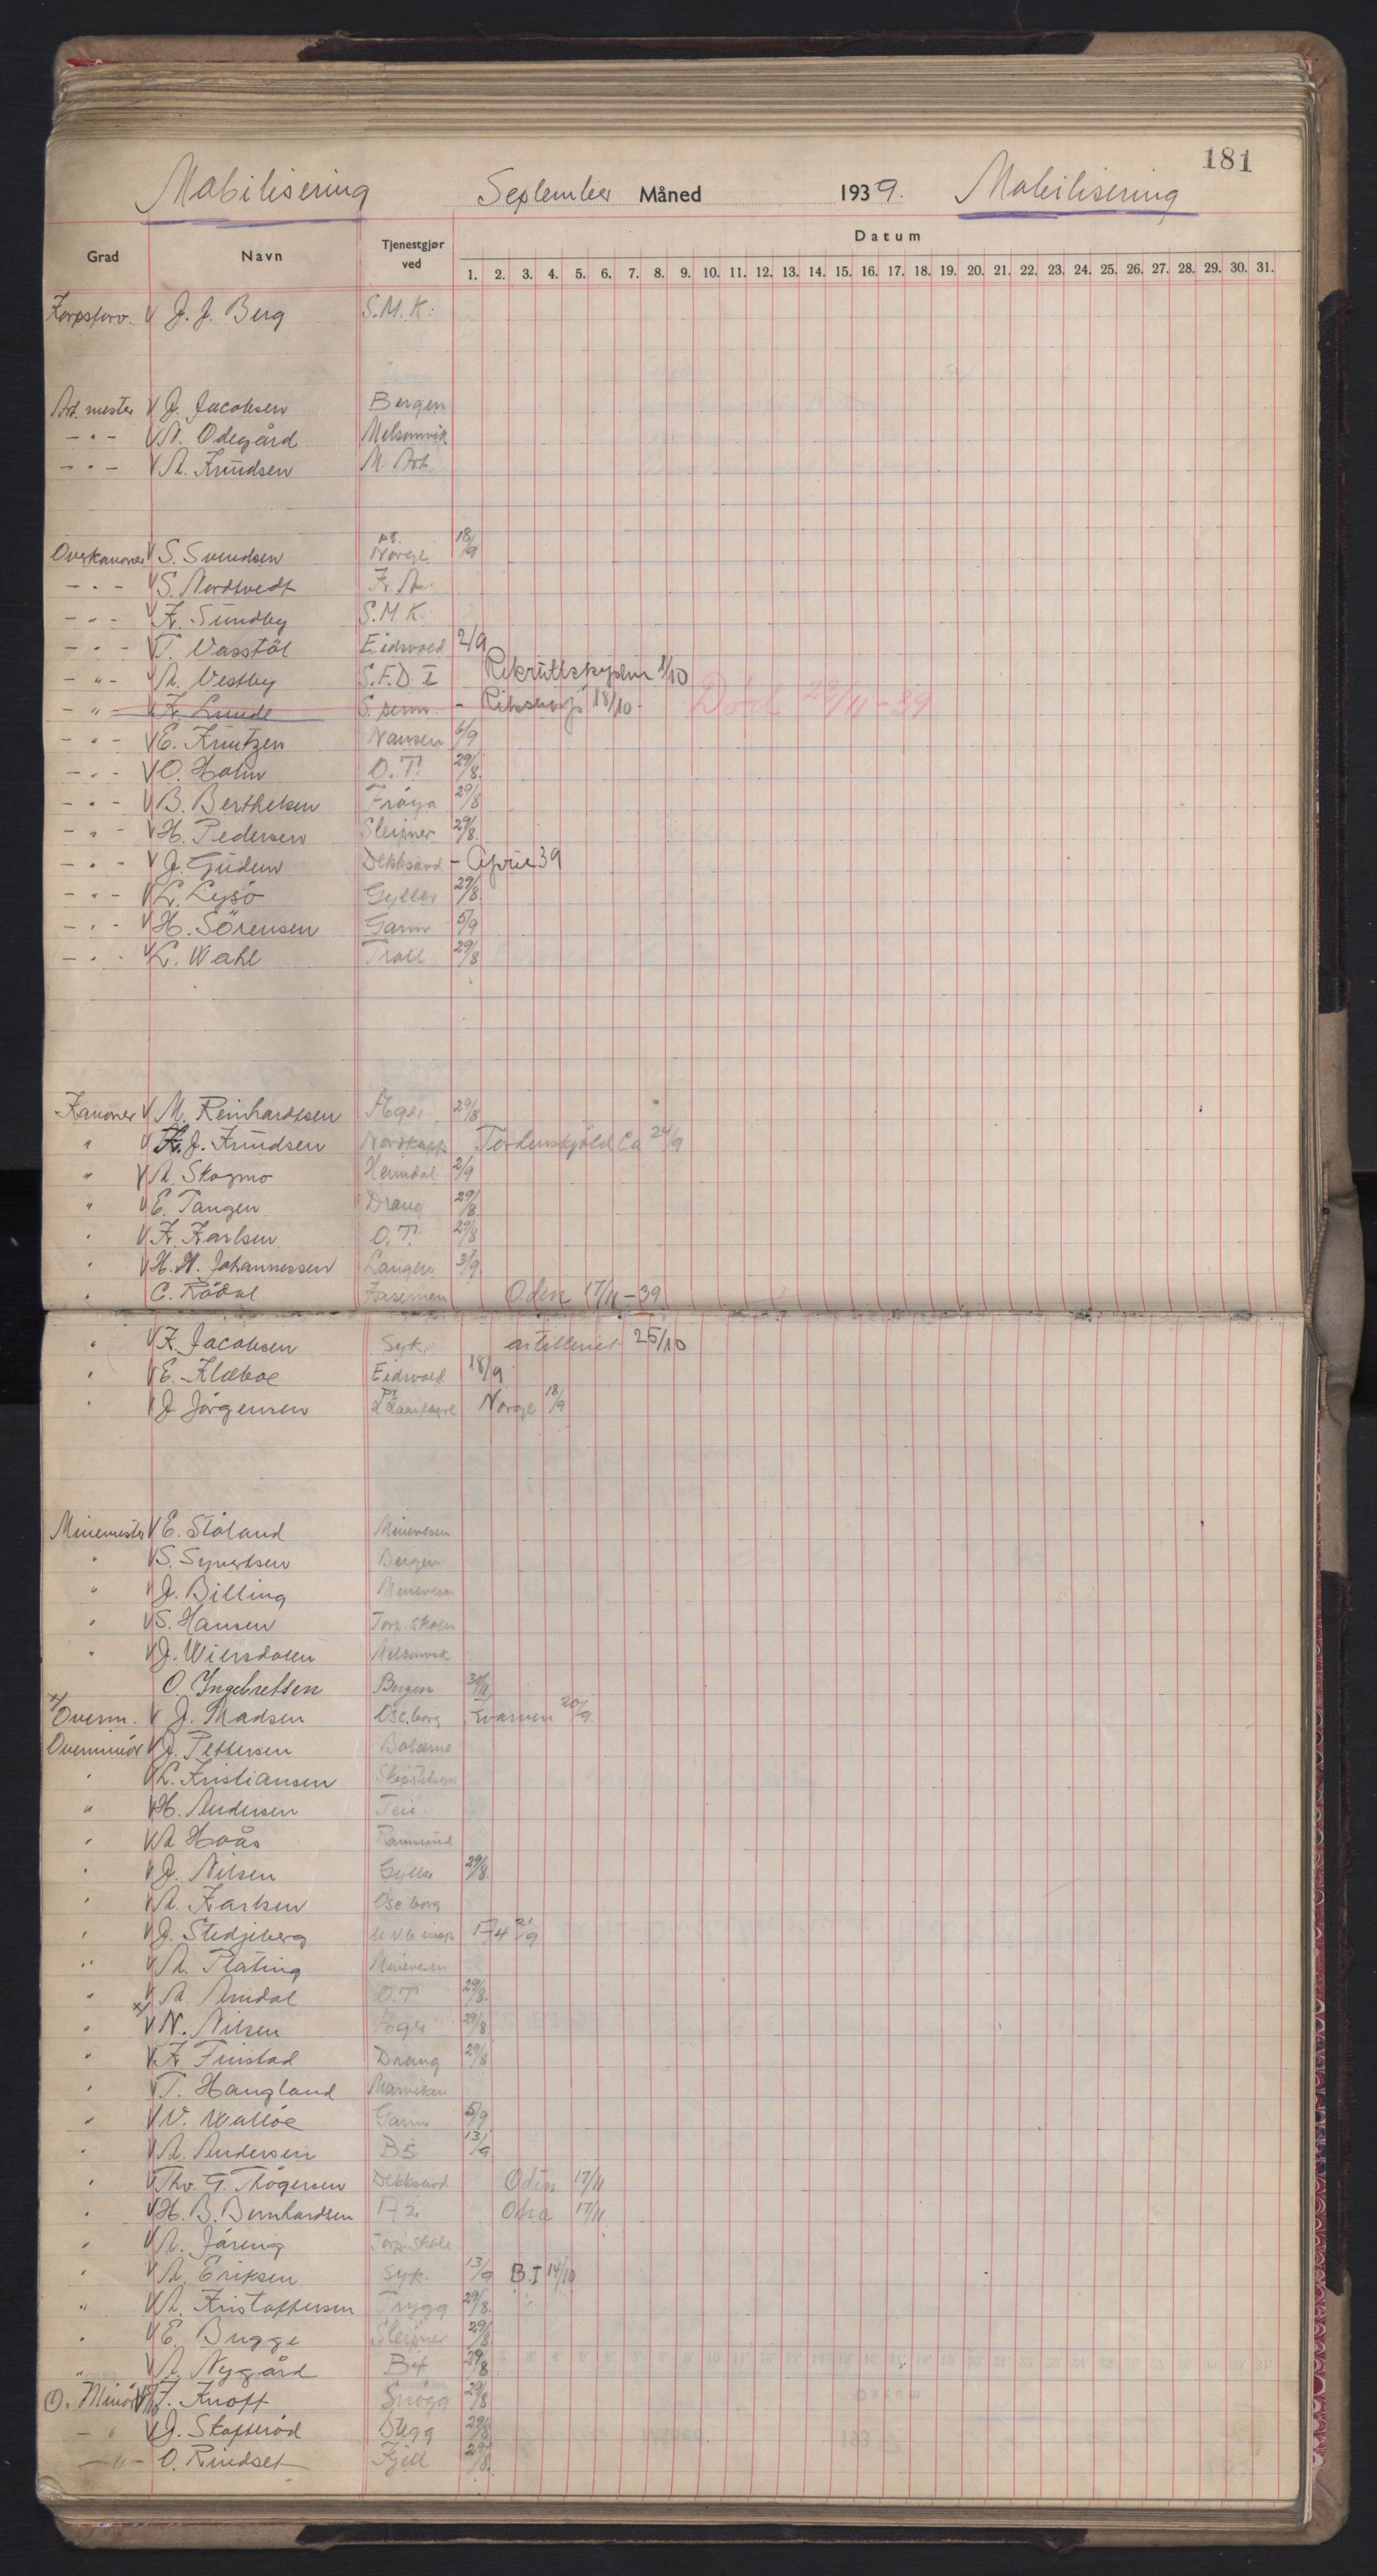 181
Mobilisering September Måned 1939. Mobilisering
Grad Navn Tjenestgjør ved Datum
1. 2. 3. 4. 5. 6. 7. 8. 9. 10. 11. 12. 13. 14. 15. 16. 17. 18. 19. 20. 21. 22. 23. 24. 25. 26. 27. 28. 29. 30. 31.
Korpsforv. V J. J. Berg S.M.K.
Art. mester V J. Jacobsen Bergen
- " - V A. Ødegård Melsomvik
- " - V A. Knudsen M. Art.
Overkanoner V S. Svendsen pt. Norge 18/9
- " - V S. Nordtvedt K.A.
- " - V K. Sundby S.M.K.
- " - V T. Vasstøl Eidsvold 2/9
- " - V A. Vestby S.F.D I Rekruttskolen 1/10
- " - V K. Lunde S. perm. - 18/10 - Død 23/11-39
- " - V E. Knutzen Nansen 6/9
- " - V O. Holm O.T. 29/8
- " - V B. Berthelsen Frøya 29/8
- " - V H. Pedersen Sleipner 29/8
- " - V J. Gudem Dekksavd - April 39
- " - V L. Lysø Gyller 29/8
- " - V H. Sørensen Garm 5/9
- " - V L. Wahl Troll 29/8
Kanoner V M. Reinhardtsen Æger 29/8
" V K. J. Knudsen Nordkapp Tordenskjold Ca 24/9
" V A. Skogmo Heimdal 2/9
" V E. Tangen Draug 29/8
" V K. Karlsen O.T. 29/8
" V H. W. Johannessen Laugen 3/9
" C. Rødal Kasernen Odin 17/11-39
" V K. Jacobsen Syk. artilleriet 25/10
" V E. Klæboe Eidsvold 18/9
" V J. Jørgensen pt Norge 18/9
Minemester V E. Støland Minevesen
" V S. Syvertsen Bergen
" V J. Billing Minevesen
" V S. Hansen Torp. skolen
" V J. Wiersdalen Melsomvik
O. Ingebretsen Bergen
x/ Overm. V J. Madsen Osc.borg Kvarven 20/9
Overminør V J. Pettersen Bolærne
" V L. Kristiansen
" V H. Andersen Teie
" V A. Hoås Ramsund
" V J. Nilsen Gyller 29/8
" V A. Karlsen Osc.borg
" V J. Stedjeberg 21/9
" V A. Plating Minevesen
" V A. Amdal O.T. 29/8
" x/ V N. Nilsen Æger 29/8
" V K. Finstad Draug 29/8
" V T. Haugland Marviken
" V V. Walløe Garm 5/9
" V A. Andersen B5 13/9
" V Thv. G. Thøgersen Dekksavd Odin 17/11
" V H. B. Bernhardsen Otra 17/11
" V A. Jåreng Torp. skole
" V A. Eriksen Syk. 13/9 B.I 14/10
" V A. Kristoffersen Trygg 29/8
" V E. Bugge Sleipner 29/8
" V A. Nygård 29/8
O. Minør V J. Knoff Snøgg 29/8
- " V J. Skofterød Stegg 29/8
- " - O. Rindset Kjell 29/8